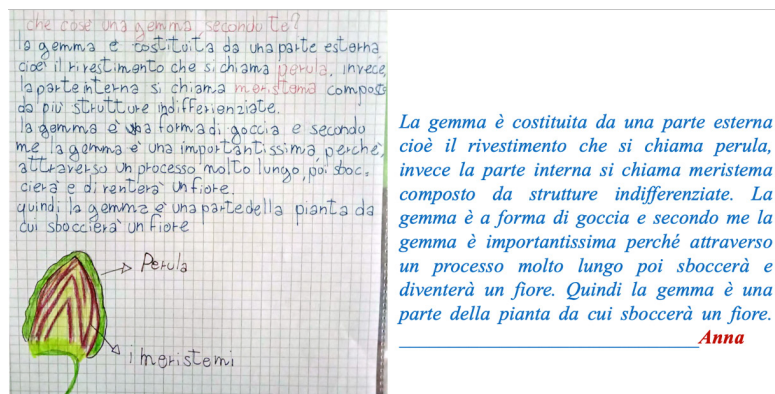 che cose una gemma, secondo te?
la gemma e costituita da una parte esterna
cioe' il rivestimento che si chiama perula, invece,
la parte interna si chiama meristema composta
da più strutture indifferienziate.
la gemma è una forma di goccia e secondo
me la gemma e' una importantissima, perche,
attraverso un processo molto lungo, poi sboc=
cierà e diventerà un fiore.
quindi la gemma e' una parte della pianta da
cui sboccierà un fiore
Perula
i meristemi
La gemma è costituita da una parte esterna
cioè il rivestimento che si chiama perula,
invece la parte interna si chiama meristema
composto da strutture indifferenziate. La
gemma è a forma di goccia e secondo me la
gemma è importantissima perché attraverso
un processo molto lungo poi sboccerà e
diventerà un fiore. Quindi la gemma è una
parte della pianta da cui sboccerà un fiore.
Anna